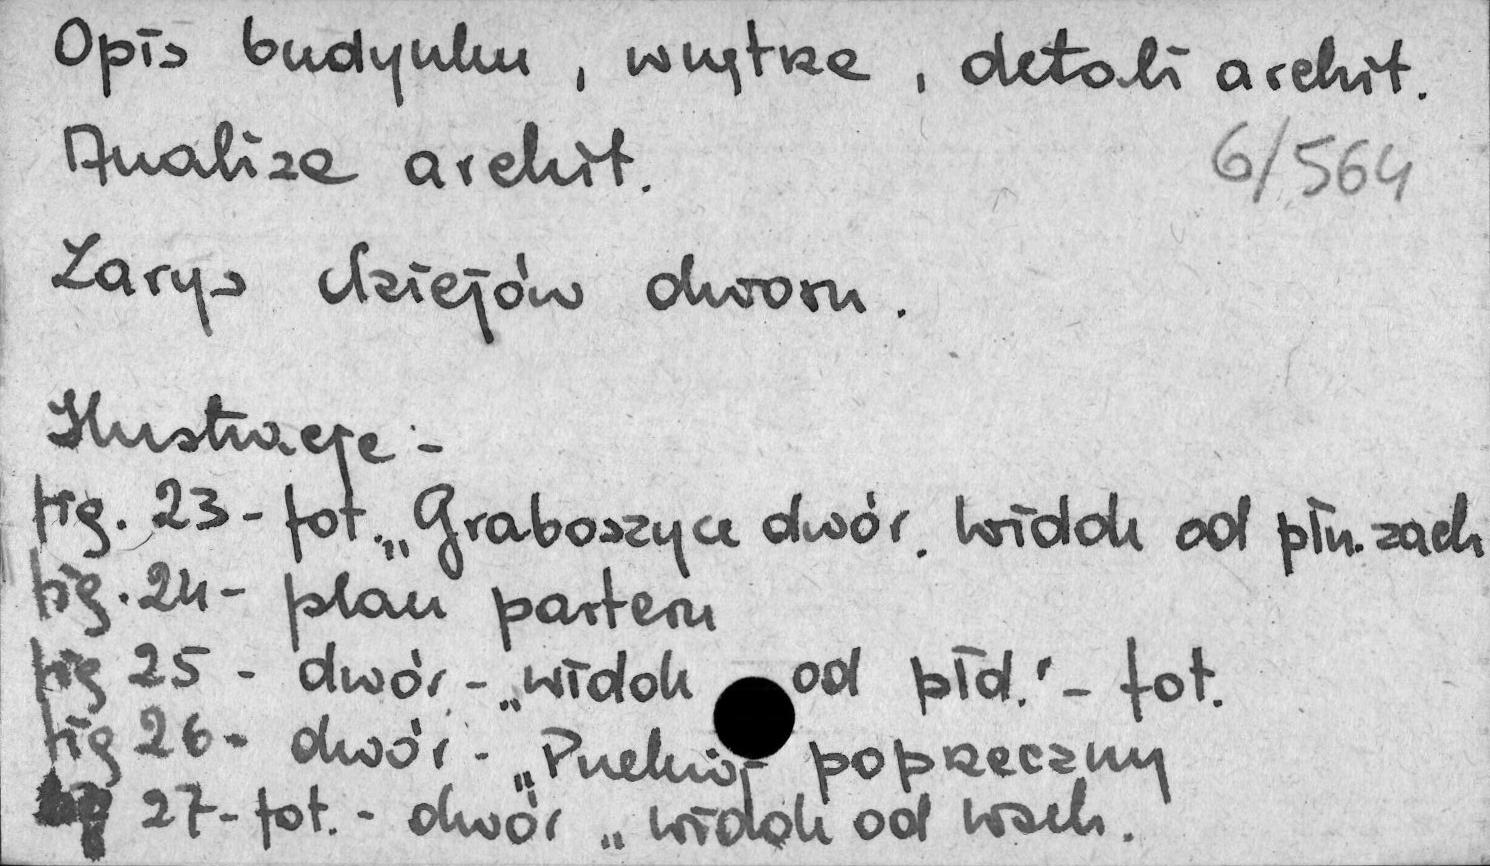 Opis budynku, wnętrze, detali archit.
Analiza archit.
6/564
Zarys dziejów dworu.
Ilustracje -
fig. 23 - fot. „Graboszyce dwór. Widok od płn. zach
fig. 24 - plan parteru
fig 25 - dwór - „widok od płd." - fot.
fig 26 - dwór - „Przekrój poprzeczny
fig 27 - fot. - dwór „widok od wsch.